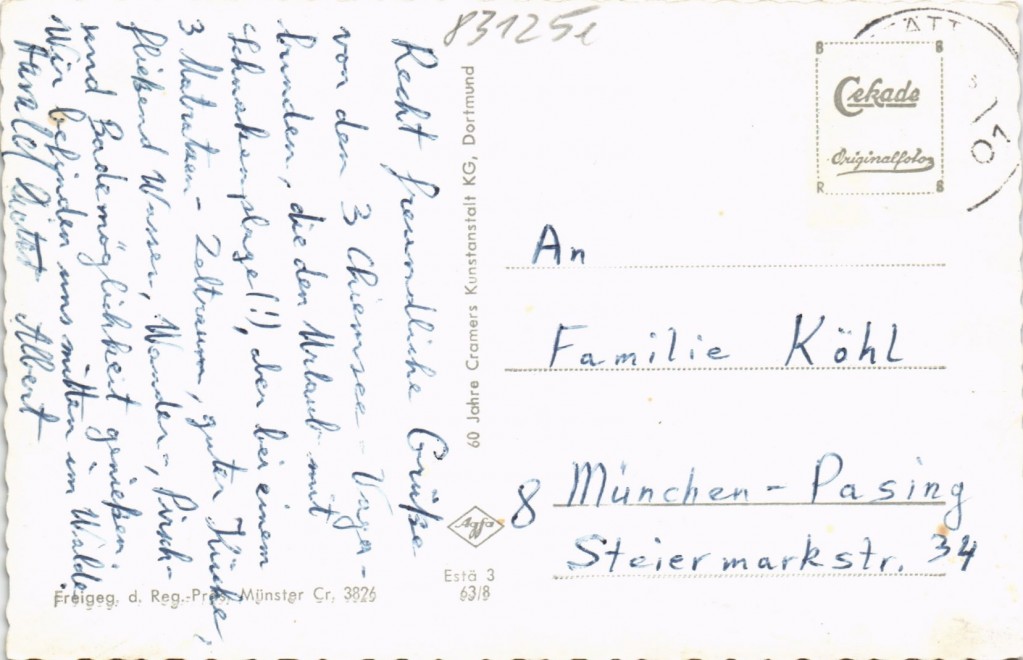 83125e
Recht freundliche Grüße
von den 3 Chiemsee-Vaga-
bunden, die den Urlaub mit
Schnakenplage (!), aber bei einem
3 Matratzen-Zeltraum, guter Küche,
fließend Wasser, Wander-, Pirsch-
und Bademöglichkeit genießen.
Wir befinden uns mitten im Walde.
Harald Albert
60 Jahre Cramers Kunstanstalt KG, Dortmund
B B
Cekade
Originalfotos
R B
An
Familie Köhl
8 München-Pasing
Steiermarkstr. 34
Agfa
Estä 3
63/8
Freigeg. d. Reg.-Präs. Münster Cr. 3826